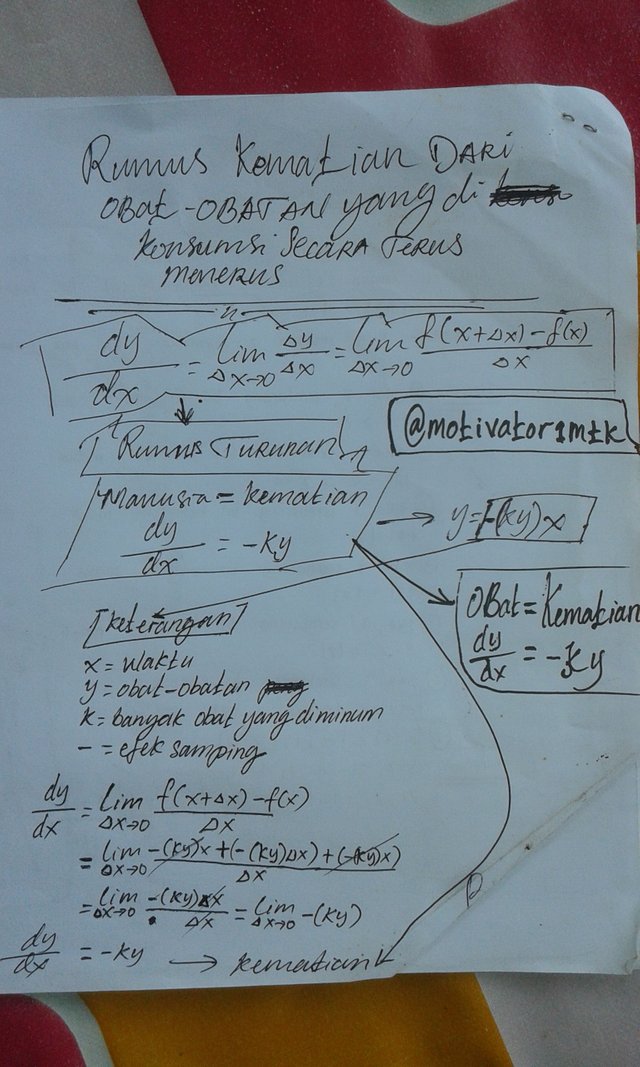 Rumus Kematian DARI
OBat-OBATAN yang di
Konsumsi Secara Terus
menerus
dy/dx = lim Δx→0 Δy/Δx = lim Δx→0 f(x+Δx)-f(x)/Δx
Rumus Turunan
@motivator1mtk
Manusia = kematian
dy/dx = -Ky
y=-(ky)x
OBat=Kematian
dy/dx = -Ky
[keterangan]
x = waktu
y = obat-obatan
k = banyak obat yang diminum
- = efek samping
dy/dx = lim Δx→0 f(x+Δx)-f(x)/Δx
= lim Δx→0 -(ky)x+(-(ky)Δx)+(-(ky)x)/Δx
= lim Δx→0 -(ky)Δx/Δx = lim Δx→0 -(ky)
dy/dx = -ky → kematian